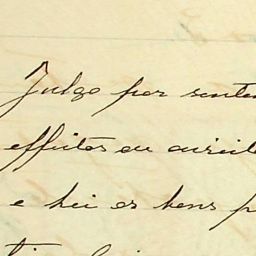 Julgo por senten
effeitos ou
e hei os bens p